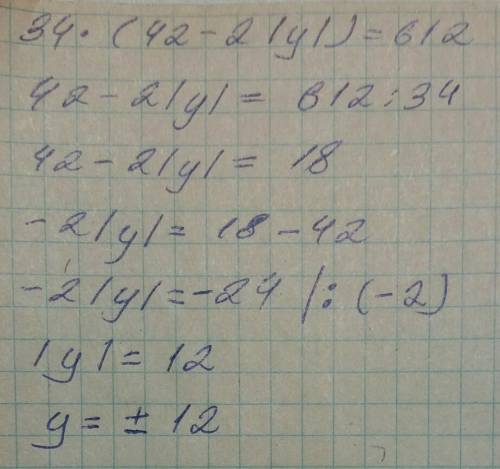 34·(42-2|y|)=612
42-2|y|= 612:34
42-2|y|= 18
-2|y|= 18-42
-2|y|=-24 |:(-2)
|y|=12
y=±12